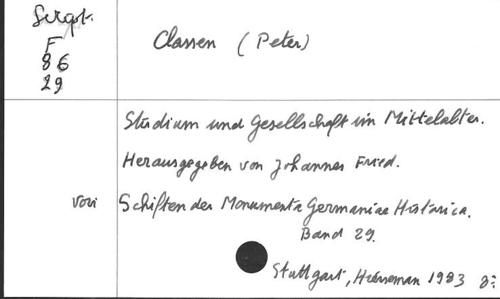 F
86
29
Classen (Peter)
Studium und Gesellschaft im Mittelalter.
Herausgegeben von Johannes Fried.
Schiften der Monumenta Germaniae Historica.
Band 29.
Stuttgart, Hierseman 1983 8: